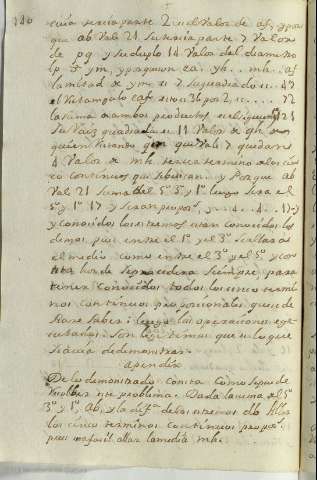 140
cuia tercia parte 2 es el valor de af, y por
que ab vale 21 su tercia parte 7 valor
de pg y su duplo 14 valor del diametro
lp. 5 ym, y
la mitad de ym es 7 su quadrado es . 49
el rectangulo caf es 36 por 2, es . . . . 72
la suma de ambos productos 121
su raiz quadrada es 11 valor de gh, de
quien restando gm que vale 7 quedan
4 valor de mh. tercer termino de los cin
co continuos que se buscan. y Porque ab
vale 21 suma del 5º 3º y 1º luego sera el
5º y 1º 17 y seran propors. 4 . 4 . 17
y conocidos los extremos eran conocidos los
demas, pues entre el 1º y el 3º se allara
el medio como entre el 3º y el 5º y con
esta luz se procedera siempre para
tener conocidos todos los cinco termi
nos continuos proporcionales que se de
sean saber: luego las operaciones exe
cutadas son legitimas que es lo que
se avia de demostrar.
apendix
De lo demostrado consta como se puede
resolver este problema. Dada la suma del 5º
3º y 1º, ab, y la dif.ª de los extremos db allar
los cinco terminos continuos propors.
pues es facil allar la media mh.